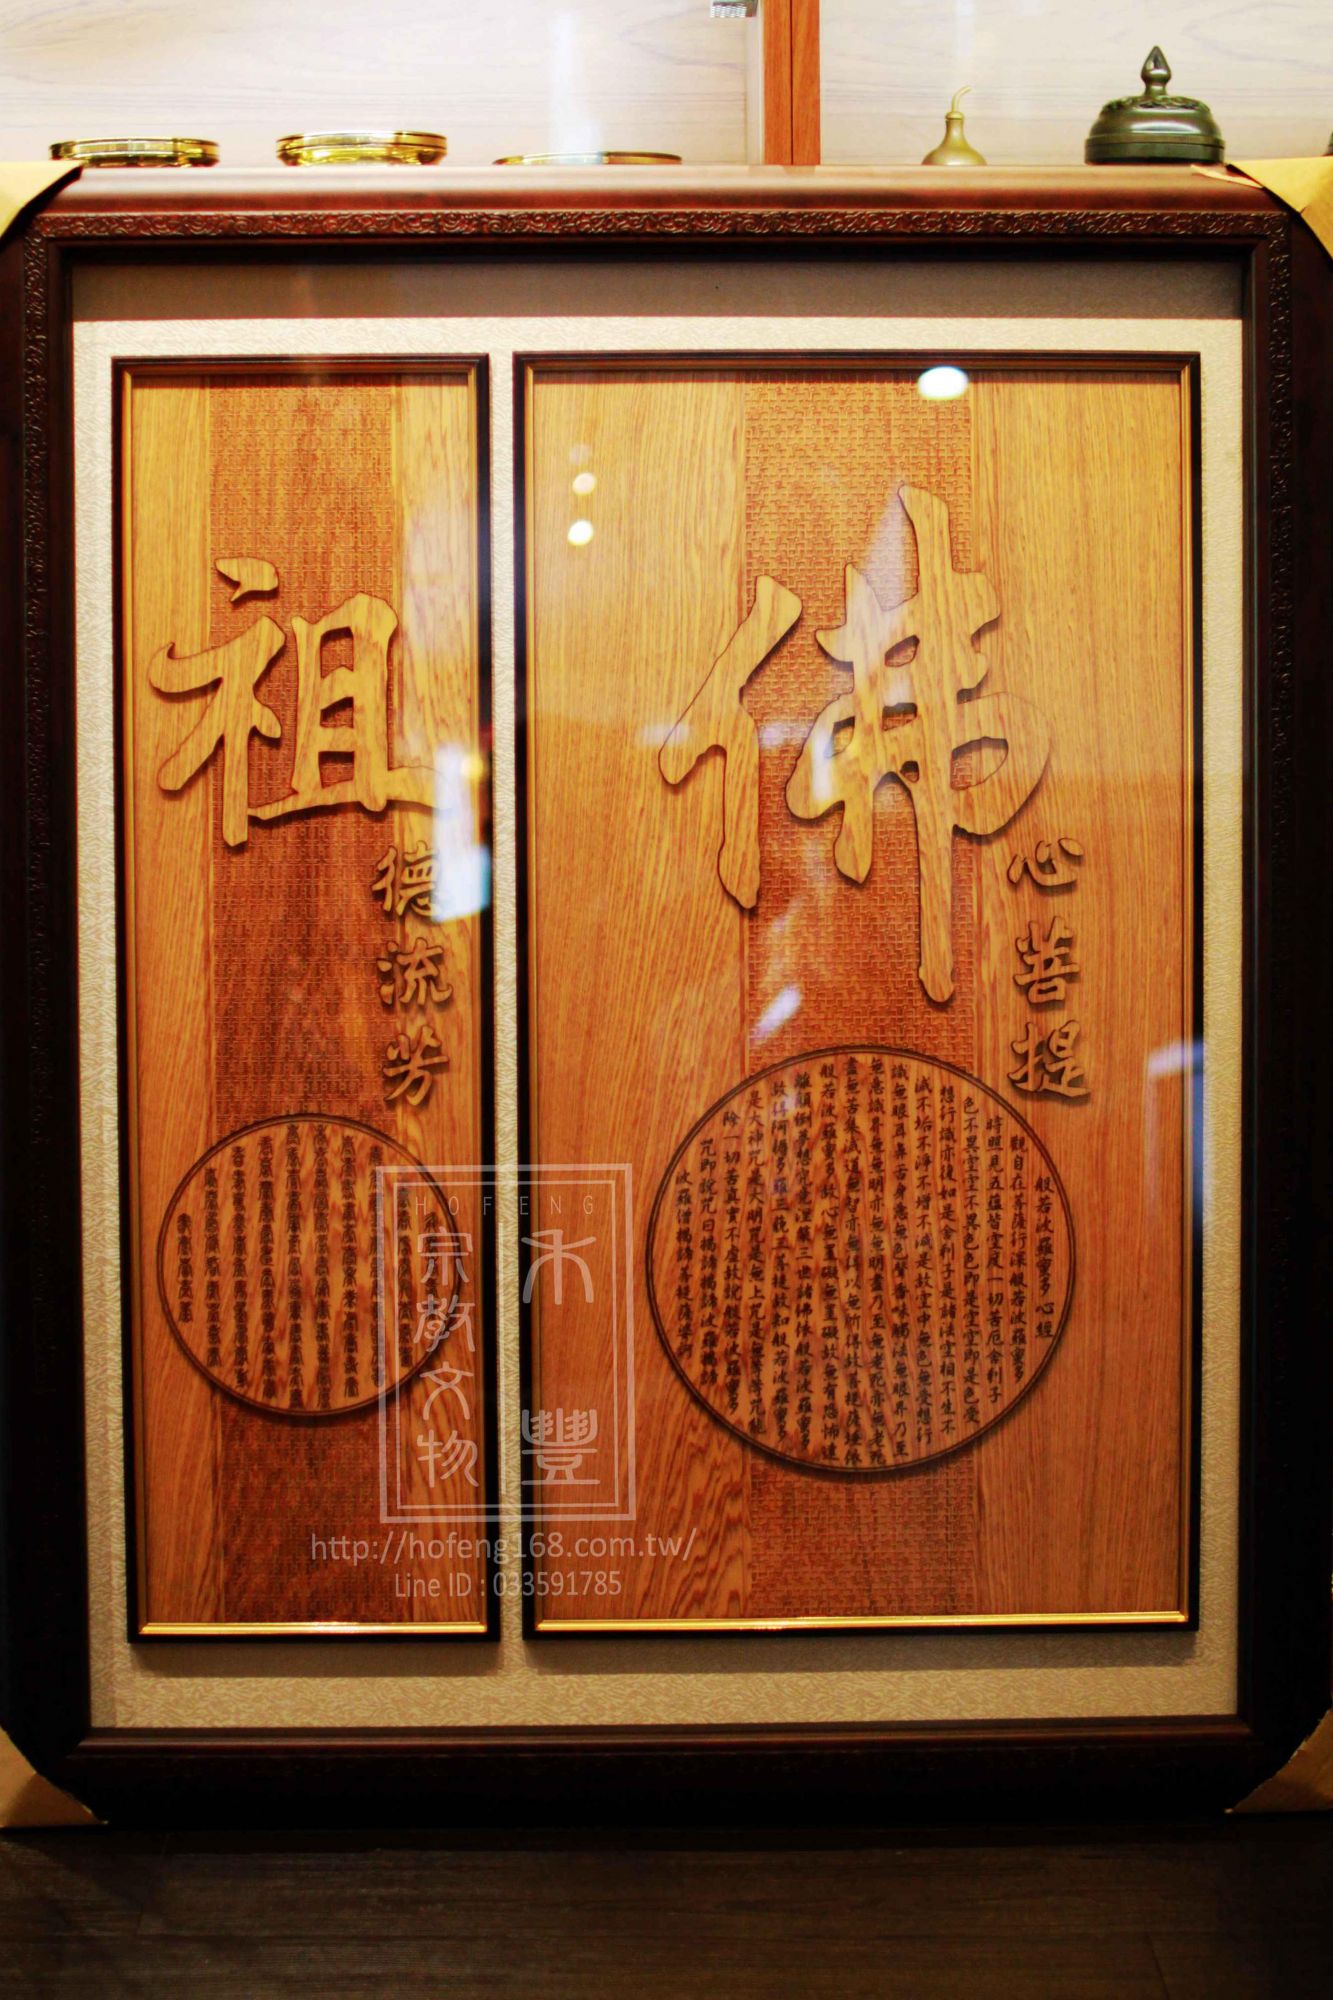 佛
心菩提
般若波羅蜜多心經
觀自在菩薩行深般若波羅蜜多
時照見五蘊皆空度一切苦厄舍利子
色不異空空不異色色即是空空即是色受
想行識亦復如是舍利子是諸法空相不生不
滅不垢不淨不增不減是故空中無色無受想行
識無眼耳鼻舌身意無色聲香味觸法無眼界乃至
無意識界無無明亦無無明盡乃至無老死亦無老死
盡無苦集滅道無智亦無得以無所得故菩提薩埵依
般若波羅蜜多故心無罣礙無罣礙故無有恐怖遠
離顛倒夢想究竟涅槃三世諸佛依般若波羅蜜多
故得阿耨多羅三藐三菩提故知般若波羅蜜多
是大神咒是大明咒是無上咒是無等等咒能
除一切苦真實不虛故說般若波羅蜜多
咒即說咒曰揭諦揭諦波羅揭諦
波羅僧揭諦菩提薩婆訶
祖
德流芳
HOFENG
禾豐
宗教文物
http://hofeng168.com.tw/
Line ID : 033591785